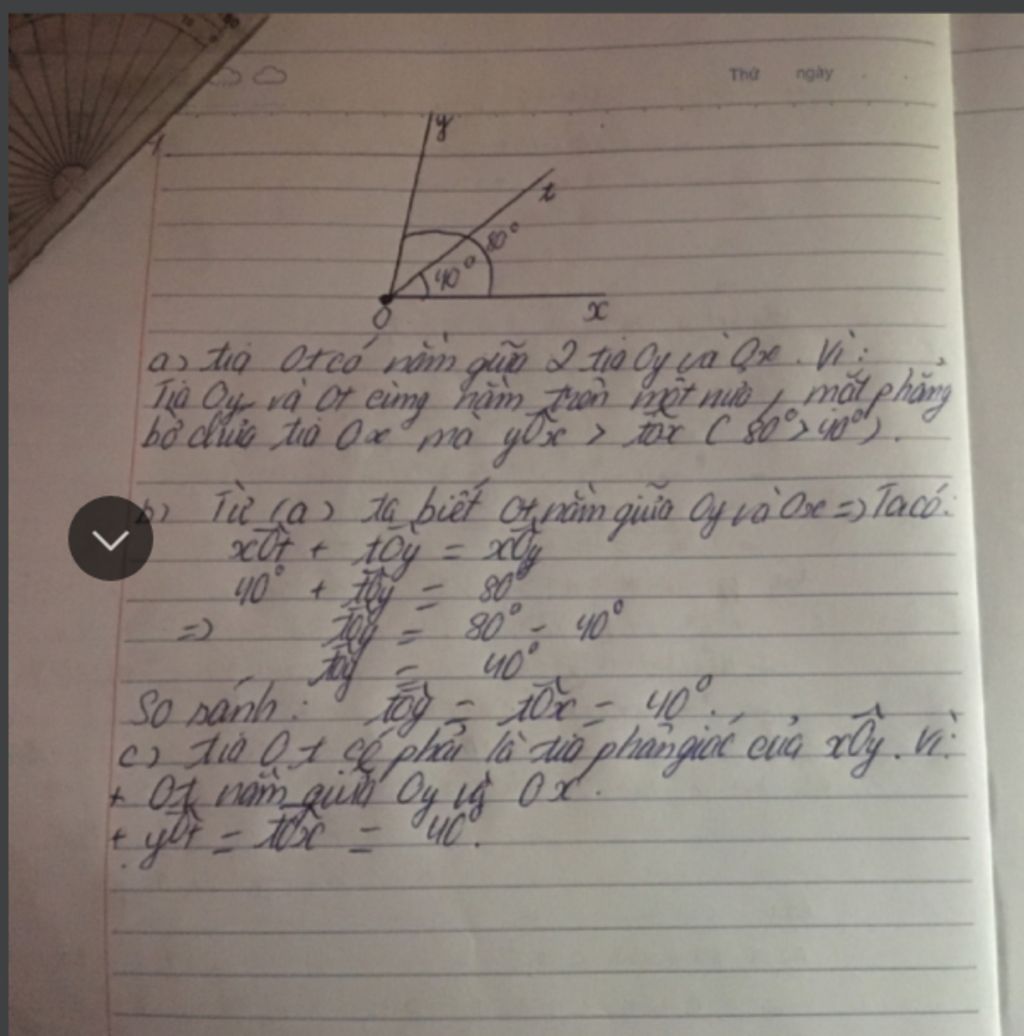 Thứ ngày
y
t
80°
40°
O
x
a) tia Ot có nằm giữa 2 tia Oy và Ox. Vì:
Tia Oy và Ot cùng nằm trên một nửa mặt phẳng
bờ chứa tia Ox mà yÔx > tÔx (80° > 40°).
b) Từ (a) ta biết Ot nằm giữa Oy và Ox => Ta có:
xÔt + tÔy = xÔy
40° + tÔy = 80°
=> tÔy = 80° - 40°
tÔy = 40°
So sánh: tÔy = tÔx = 40°.
c) tia Ot có phải là tia phân giác của xÔy. Vì:
+ Ot nằm giữa Oy và Ox.
+ yÔt = tÔx = 40°.